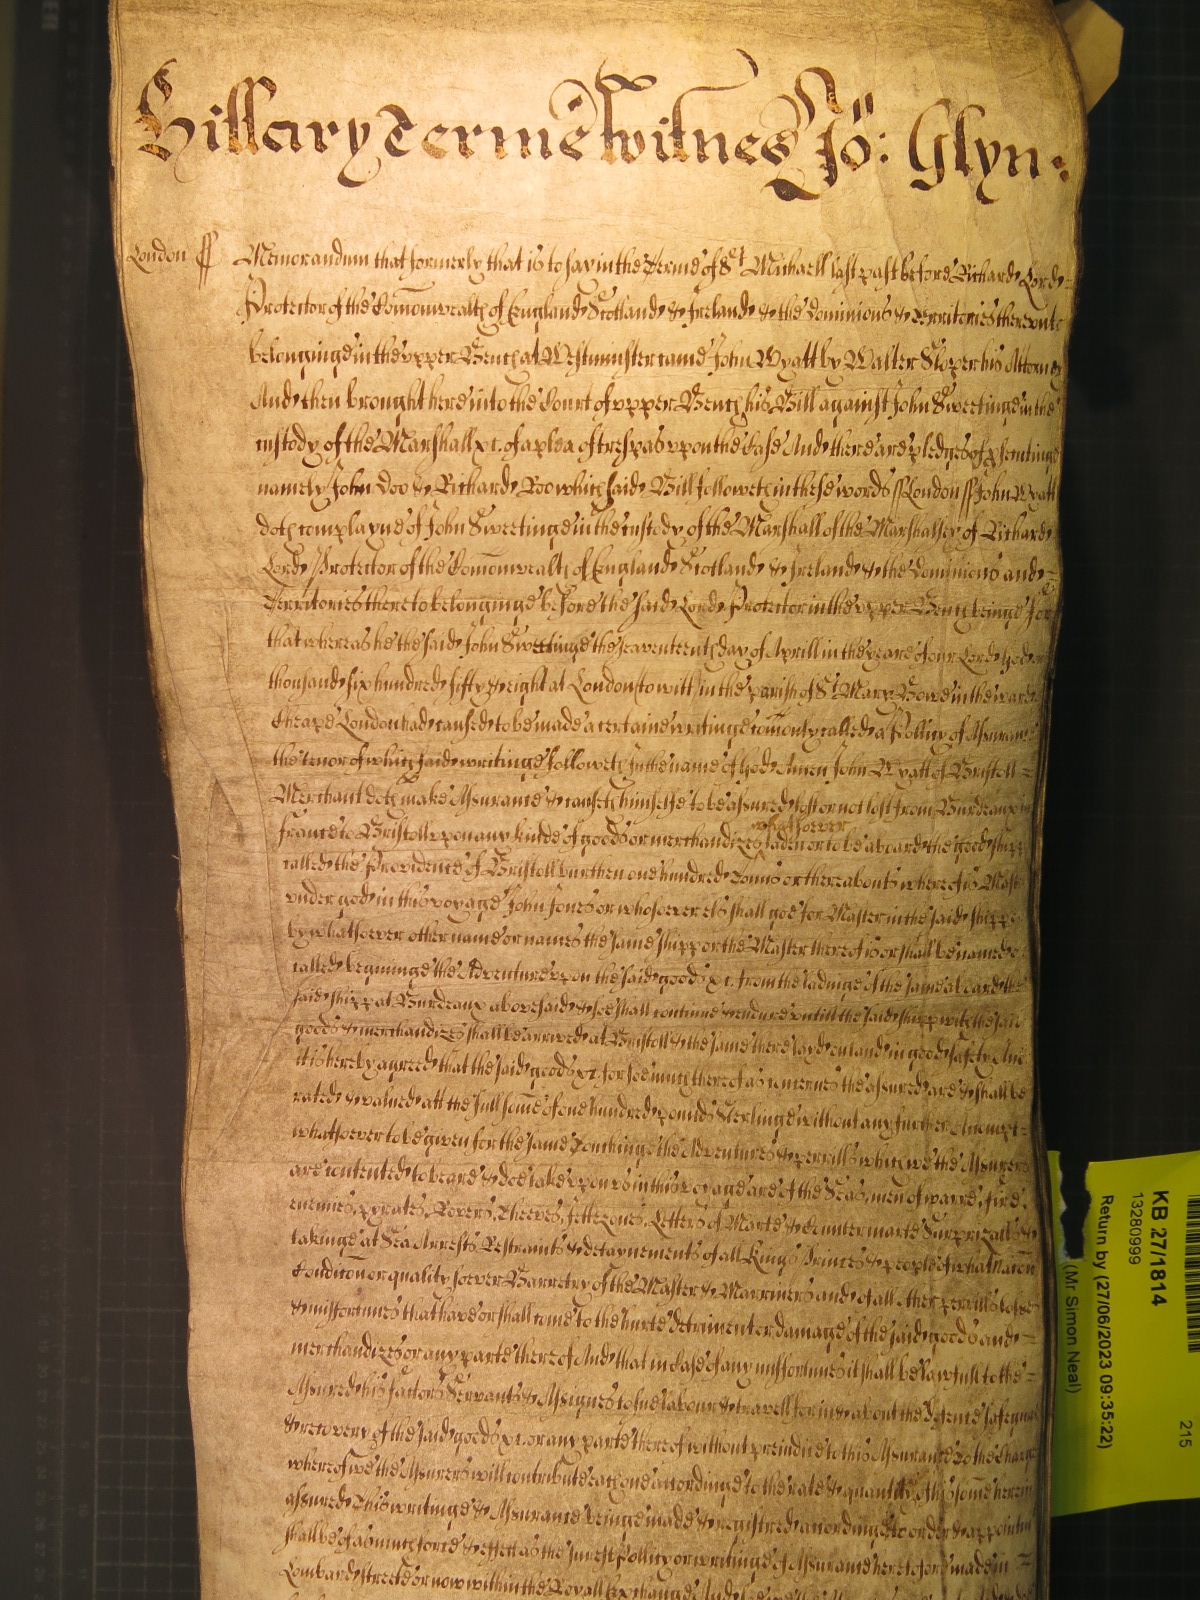 Hillary Terme Witnes Jo: Glyn:
London ss Memorandum that formerly that is to say in the Terme of St Michaell last past before Richard Lord
Protector of the Comonwealth of England Scotland & Ireland & the Dominions & Territories thereunto
belonginge in the upper Bench at Westminster came John Wyatt by Walter Sloper his Attorney
And then brought here into the Court of upper Bench his Bill against John Sweetinge in the
custody of the Marshall &c. of a plea of trespas upon the Case And there are pledges of prosecutinge
namely John Doo & Richard Roo which said Bill followeth in these words ss London ss John Wyatt
doth complayne of John Sweetinge in the custody of the Marshall of the Marshalsey of Richard
Lord Protector of the Comonwealth of England Scotland & Ireland & the Dominions and
Territories thereto belonginge before the said Lord Protector in the upper Bench beinge For
that whereas he the said John Sweetinge the seaventeenth day of Aprill in the yeare of our Lord God one
thousand six hundred fifty & eight at London to witt in the parish of St Mary Bowe in the ward
Cheape London had caused to be made a certaine writinge comonly called a Pollicy of Assurance
the tenor of which said writinge followeth In the name of God Amen John Wyatt of Bristoll
Merchant doth make Assurance & causeth himselfe to be assured lost or not lost from Burdeaux in
france to Bristoll upon any kinde of goods or merchandizes whatsoever laden or to be aboard the good shipp
called the Providence of Bristoll burthen one hundred Tonns or thereabouts whereof is Master
under god in this voyage John Jones or whosoever els shall goe for Master in the said shippe
by whatsoever other name or names the same shipp or the Master thereof is or shall be named or
called beginninge the Adventure upon the said goods &c. from the ladinge of the same aboard the
said shipp at Burdeaux abovesaid & soe shall continue & endure untill the said shipp with the said
goods & merchandizes shall be arrived at Bristoll & the same there layd on land in good safety And
it is hereby agreed that the said goods &c. for soe much thereof as concernes the assured are & shall be
rated & valued att the full some of one hundred pounds Sterlinge without any further Accompt
whatsoever to be given for the same Touchinge the Adventures & perrills which we the Assurers
are contented to beare & doe take upon us in this voyage are of the Seas, men of warre, fire,
enemies, pyrates, Rovers, Theeves, Jettezons, Letters of Marte & Countermarte Surprizalls &
takinge at Sea Arrests Restraints & detaynements of all Kings Princes & people of what Nacon
Condicon or quality soever Barretry of the Master & Marriners and of all other perrills losses
& misfortunes that have or shall come to the hurte detriment or damage of the said goods and
merchandizes or any parte thereof And that in case of any misfortunes it shall be lawfull to the
Assured his factors Servants & Assignes to sue labour & travell for in & about the defence safeguard
& recovery of the said goods &c. or any parte thereof without prejudice to this Assurance To the Charge
whereof we the Assurers will contribute each one accordinge to the rate & quantity of his some herein
assured This writinge & Assurance beinge made & registred accordinge to order & appointmt
shall be of as much force & effect as the surest Pollicy or writinge of Assurance heretofore made in
Lombard streete or now within the Royall Exchange
KB 27/1814
13280999
Return by (27/06/2023 09:35:22)
(Mr Simon Neal)
215